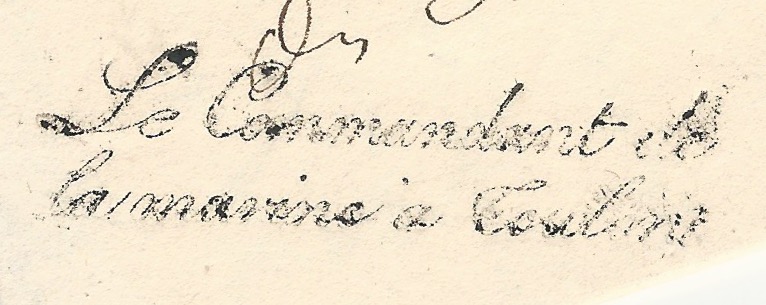 Du
Le Commandant de
la marine à Toulon